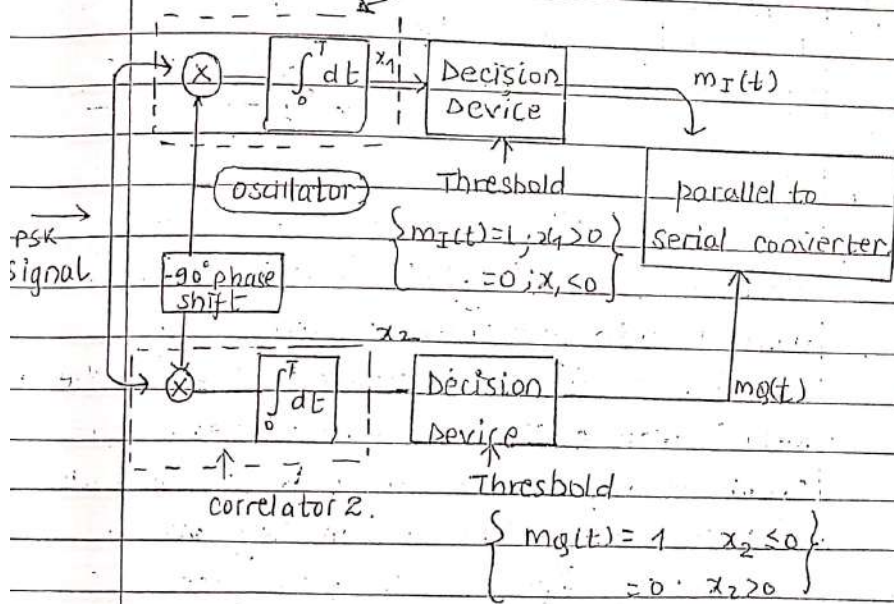 ∫₀ᵀ dt
x₁
Decision
Device
m_I(t)
X
oscillator
Threshold
parallel to
serial converter
PSK
signal
{ m_I(t)=1 ; x₁>0 }
=0 ; x₁<0
-90° phase
shift
x₂
X
∫₀ᵀ dt
Decision
Device
mQ(t)
correlator 2.
Threshold
{ mQ(t) = 1 x₂ ≤ 0 }
=0 x₂>0